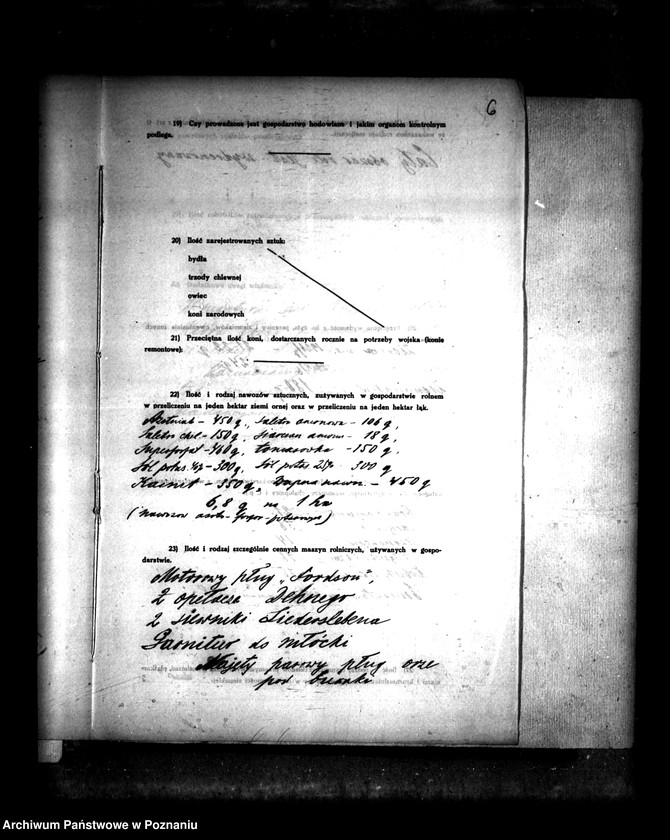 6
19) Czy prowadzone jest gospodarstwo hodowlane i jakim organom kontrolnym
podlega.
20) Ilość zarejestrowanych sztuk:
bydła
trzody chlewnej
owiec
koni zarodowych
21) Przeciętna ilość koni, dostarczanych rocznie na potrzeby wojska (konie
remontowe):
22) Ilość i rodzaj nawozów sztucznych, zużywanych w gospodarstwie rolnem
w przeliczeniu na jeden hektar ziemi ornej oraz w przeliczeniu na jeden hektar łąk.
Azotniak - 450 q, Saletra amonowa - 106 q,
Saletra chil - 150 q, Siarczan amonu - 18 q,
Superfosfat - 460 q, tomasówka - 150 q,
Sól potas. - 300 q, Sól potas 25% 300 q
Kainit - 350 q, Wapna nawoz. - 450 q
6,8 q na 1 ha
(nawozów azoto-fosfor-potasowych)
23) Ilość i rodzaj szczególnie cennych maszyn rolniczych, używanych w gospo-
darstwie.
Motorowy pług „Fordson",
2 opełacze Dehnego
2 siewniki Siederslebena
Garnitur do młócki
Najęty parowy pług orze
pod buraki
Archiwum Państwowe w Poznaniu